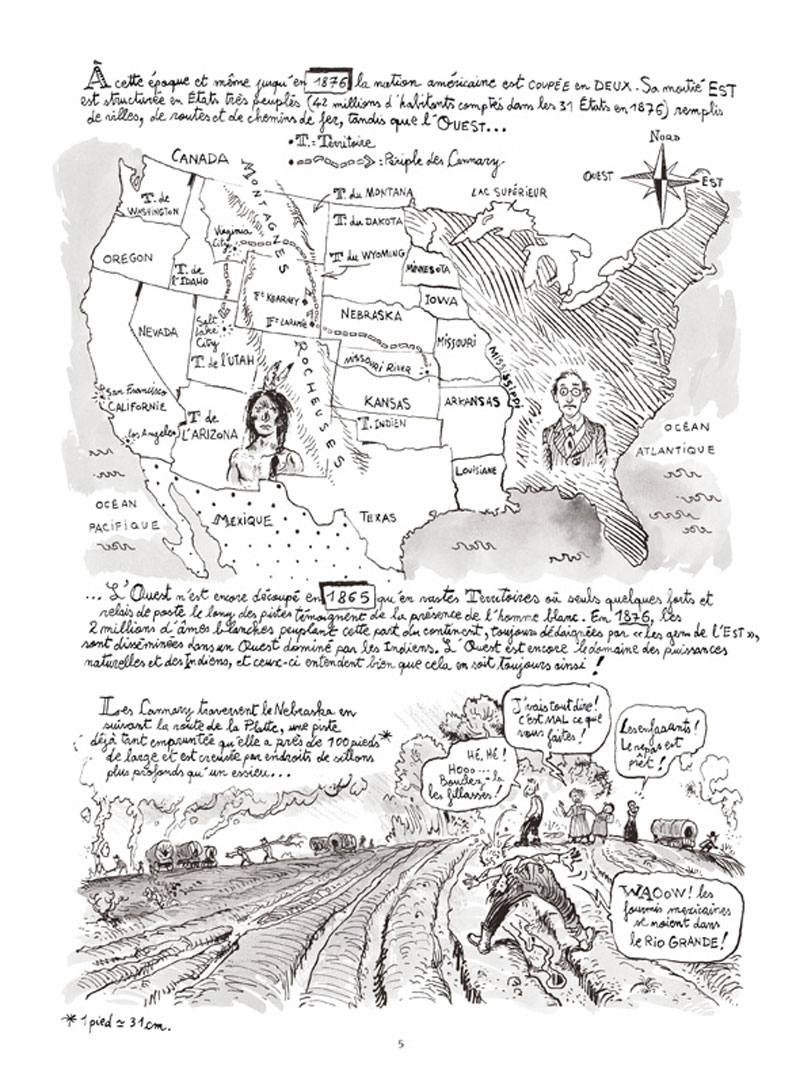 À cette époque et même jusqu'en 1876 la nation américaine est COUPÉE en DEUX. Sa moitié EST
est structurée en États très peuplés (42 millions d'habitants comptés dans les 31 États en 1876) remplis
de villes, de routes et de chemins de fer, tandis que l'OUEST...
• T. = Territoire
: Périple des Cannary
NORD
OUEST
EST
CANADA
LAC SUPÉRIEUR
MONTAGNES
T. de
WASHINGTON
T. du MONTANA
T. du DAKOTA
Virginia
City
OREGON
T. de
l'IDAHO
T. du WYOMING
MINNESOTA
Ft KEARNEY
Ft LARAMIE
IOWA
NEBRASKA
NEVADA
Salt
Lake
City
T. de l'UTAH
ROCHEUSES
MISSOURI
MISSOURI RIVER
MISSISSIPI
San Francisco
CALIFORNIE
KANSAS
ARKANSAS
T. INDIEN
Los Angeles
T. de
l'ARIZONA
OCÉAN
ATLANTIQUE
LOUISIANE
OCÉAN
PACIFIQUE
MEXIQUE
TEXAS
... L'Ouest n'est encore découpé en 1865 qu'en vastes Territoires où seuls quelques forts et
relais de poste le long des pistes témoignent de la présence de l'homme blanc. En 1876, les
2 millions d'âmes blanches peuplant cette part du continent, toujours dédaignées par « les gens de l'EST »,
sont disséminées dans un Ouest dominé par les Indiens. L'Ouest est encore le domaine des puissances
naturelles et des Indiens, et ceux-ci entendent bien que cela en soit toujours ainsi !
Les Cannary traversent le Nebraska en
suivant la route de la Platte, une piste
déjà tant empruntée qu'elle a près de 100 pieds*
de large et est creusée par endroits de sillons
plus profonds qu'un essieu...
HÉ, HÉ !
HOOO...
Bouclez-la
les fillasses !
J'vais tout dire !
C'est MAL ce que
vous faites !
Les enfaaants !
Le repas est
prêt !
WAOoW ! les
fourmis mexicaines
se noient dans
le RIO GRANDE !
* 1 pied ≃ 31 cm.
5